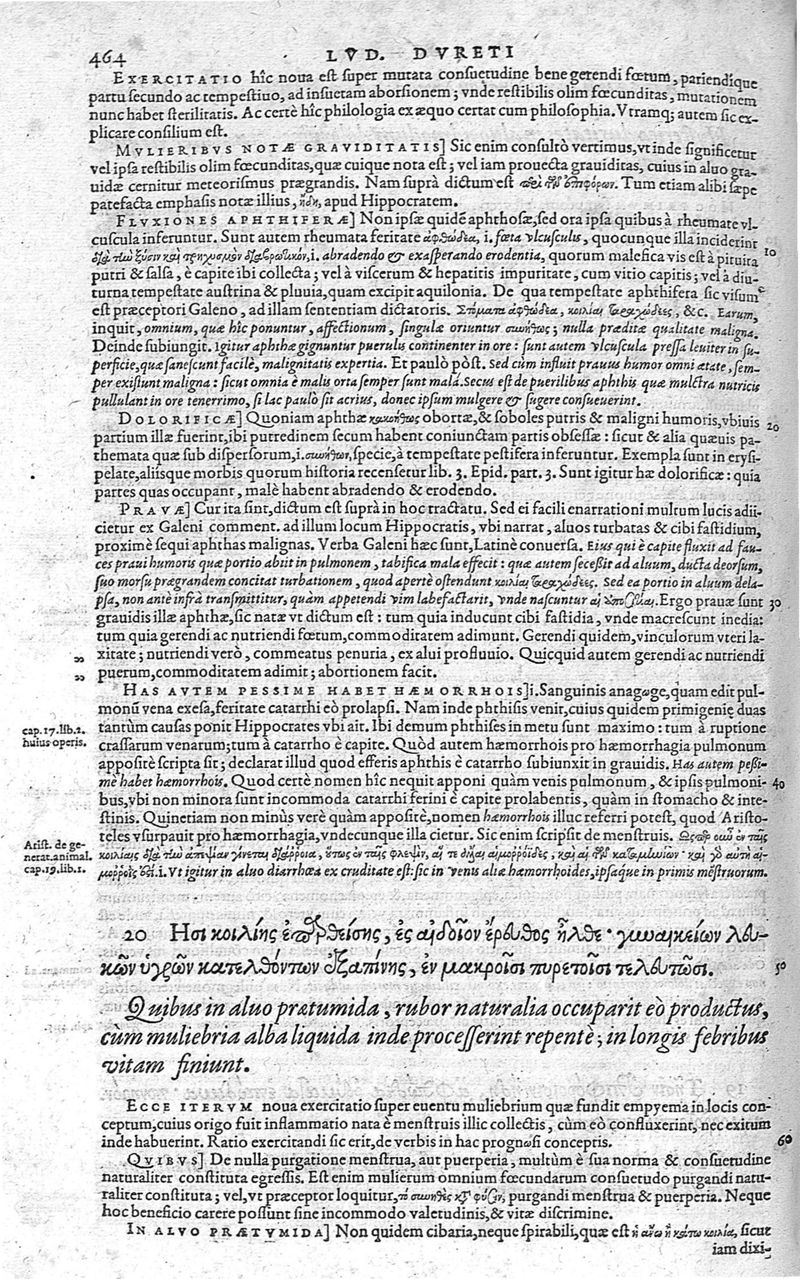 464 LVD. DVRETI
EXERCITATIO hîc noua est super mutata consuetudine bene gerendi fœtum, pariendique
partu secundo ac tempestiuo, ad insuetam aborsionem; vnde restibilis olim fœcunditas, mutationem
nunc habet sterilitatis. Ac certè hîc philologia ex æquo certat cum philosophia. Vtramq; autem sic ex-
plicare consilium est.
MVLIERIBVS NOTÆ GRAVIDITATIS] Sic enim consultò vertimus, vt inde significetur
vel ipsa restibilis olim fœcunditas, quæ cuique nota est; vel iam prouecta grauiditas, cuius in aluo gra-
uidæ cernitur meteorismus prægrandis. Nam suprà dictum est Tum etiam alibi sæpe
patefacta emphasis notæ illius, ἤδη, apud Hippocratem.
FLVXIONES APHTHIFERÆ] Non ipsæ quidē aphthosæ, sed ora ipsa quibus à rheumate vl-
cuscula inferuntur. Sunt autem rheumata feritate ἀφθώδεα, i. fœta vlcusculis, quocunque illa inciderint
i. abradendo & exasperando erodentia, quorum malefica vis est à pituita 10
putri & salsa, è capite ibi collecta; vel à viscerum & hepatitis impuritate, cum vitio capitis; vel à diu-
turna tempestate austrina & pluuia, quam excipit aquilonia. De qua tempestate aphthifera sic visum
est præceptori Galeno, ad illam sententiam dictatoris. Στόματα ἀφθώδεα, κοιλίαι ταραχώδεες, &c. Earum,
inquit, omnium, quæ hîc ponuntur, affectionum, singulæ oriuntur συνήθως; nulla præditæ qualitate maligna.
Deinde subiungit. Igitur aphthæ gignuntur puerulis continenter in ore: sunt autem vlcuscula pressa leuiter in su-
perficie, quæ sanescunt facilè, malignitatis expertia. Et paulò pòst. Sed cùm influit prauus humor omni ætate, sem-
per existunt maligna: sicut omnia è malis orta semper sunt mala. Secus est de puerilibus aphthis quæ mulctra nutricis
pullulant in ore tenerrimo, si lac paulò sit acrius, donec ipsum mulgere & sugere consueuerint.
DOLORIFICÆ] Quoniam aphthæ κακοήθως obortæ, & soboles putris & maligni humoris, vbiuis 20
partium illæ fuerint, ibi putredinem secum habent coniunctam partis obsessæ: sicut & alia quæuis pa-
themata quæ sub dispersorum, i. συνήθων, specie, à tempestate pestifera inferuntur. Exempla sunt in erysi-
pelate, aliisque morbis quorum historia recensetur lib. 3. Epid. part. 3. Sunt igitur hæ dolorificæ: quia
partes quas occupant, malè habent abradendo & erodendo.
PRAVÆ] Cur ita sint, dictum est suprà in hoc tractatu. Sed ei facili enarrationi multum lucis adii-
cietur ex Galeni comment. ad illum locum Hippocratis, vbi narrat, aluos turbatas & cibi fastidium,
proximè sequi aphthas malignas. Verba Galeni hæc sunt, Latinè conuersa. Eius qui è capite fluxit ad fau-
ces praui humoris quæ portio abiit in pulmonem, tabifica mala effecit: quæ autem secessit ad aluum, ducta deorsum,
suo morsu prægrandem concitat turbationem, quod apertè ostendunt κοιλίαι ταραχώδεες. Sed ea portio in aluum dela-
psa, non antè infrà transmittitur, quàm appetendi vim labefactarit, vnde nascuntur Ergo prauæ sunt 30
grauidis illæ aphthæ, sic natæ vt dictum est: tum quia inducunt cibi fastidia, vnde macrescunt inedia:
tum quia gerendi ac nutriendi fœtum, commoditatem adimunt. Gerendi quidem, vinculorum vteri la-
„ xitate; nutriendi verò, commeatus penuria, ex alui profluuio. Quicquid autem gerendi ac nutriendi
„ puerum, commoditatem adimit; abortionem facit.
HAS AVTEM PESSIME HABET HÆMORRHOIS] i. Sanguinis anagωge, quam edit pul-
monū vena exesa, feritate catarrhi eo prolapsi. Nam inde phthisis venit, cuius quidem primigeniæ duas
cap. 17. lib. 2. tantùm causas ponit Hippocrates vbi ait. Ibi demum phthises in metu sunt maximo: tum à ruptione
huius operis. crassarum venarum; tum à catarrho è capite. Quòd autem hæmorrhois pro hæmorrhagia pulmonum
appositè scripta sit; declarat illud quod efferis aphthis è catarrho subiunxit in grauidis. Has autem pessi-
mè habet hæmorrhois. Quod certè nomen hîc nequit apponi quàm venis pulmonum, & ipsis pulmoni- 40
bus, vbi non minora sunt incommoda catarrhi ferini è capite prolabentis, quàm in stomacho & inte-
stinis. Quinetiam non minùs verè quàm appositè, nomen hæmorrhois illuc referri potest, quod Aristo-
Arist. de ge- teles vsurpauit pro hæmorrhagia, vndecunque illa cietur. Sic enim scripsit de menstruis. Ὥσπερ οὖν ἐν ταῖς
nerat. animal. κοιλίαις διὰ τὴν ἀπεψίαν γίνεται διάρροια, οὕτως ἐν ταῖς φλεψὶν, αἵ τε ἄλλαι αἱμορροΐδες, καὶ αἱ τῶν καταμηνίων· καὶ γὰρ αὕτη αἱ-
cap. 19. lib. 1. μορροΐς ἐστι. i. Vt igitur in aluo diarrhœa ex cruditate est: sic in venis aliæ hæmorrhoides, ipsaque in primis mēstruorum.
20 Ησι κοιλίης ἐπαρθείσης, ἐς αἰδοῖον ἔρευθος ἦλθε· γυναικείων λευ-
κῶν ὑγρῶν κατελθόντων ἐξαπίνης, ἐν μακροῖσι πυρετοῖσι τελευτῶσι. 50
Quibus in aluo prætumida, rubor naturalia occuparit eò productus,
cùm muliebria alba liquida inde processerint repente; in longis febribus
vitam finiunt.
ECCE ITERVM noua exercitatio super euentu muliebrium quæ fundit empyema in locis con-
ceptum, cuius origo fuit inflammatio nata è menstruis illic collectis, cùm eò confluxerint, nec exitum
inde habuerint. Ratio exercitandi sic erit, de verbis in hac prognωsi conceptis. 60
QVIBVS] De nulla purgatione menstrua, aut puerperia, multùm è sua norma & consuetudine
naturaliter constituta egressis. Est enim mulierum omnium fœcundarum consuetudo purgandi natu-
raliter constituta; vel, vt præceptor loquitur, τὸ σύνηθες κατὰ φύσιν, purgandi menstrua & puerperia. Neque
hoc beneficio carere possunt sine incommodo valetudinis, & vitæ discrimine.
IN ALVO PRÆTVMIDA] Non quidem cibaria, neque spirabili, quæ est ἡ ἄνω ἢ κάτω κοιλία, sicut
iam dixi-